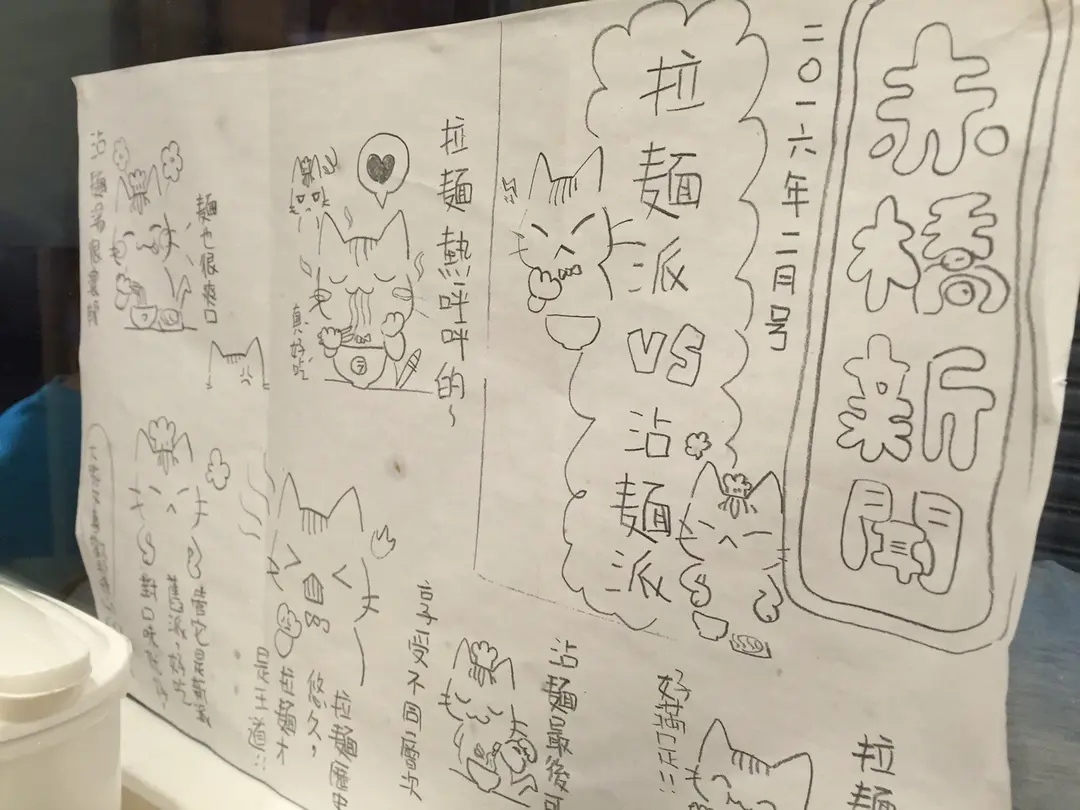 赤橋新聞
二〇一六年二月号
拉麵派
VS
沾麵派
拉麵
好滿足!!
沾麵最後可
享受不同層次
拉麵熱呼呼的~
真好吃
拉麵歷史
悠久,
拉麵才
是王道!!
麵也很爽口
沾麵湯很濃郁
管它是新派
舊派,好吃
對口味就好